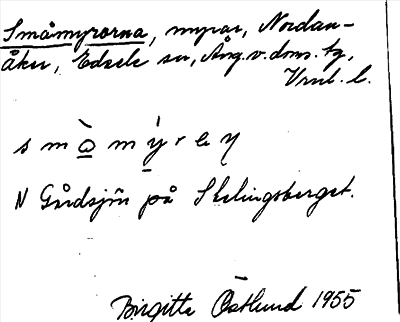 Småmyrorna, myrar, Nordan-
åker, Edsele sn, Ång. v. doms. tg,
Vnrl. l.
s m å m y r e ŋ
N Gårdsjön på Skelingsberget.
Birgitta Östlund 1955